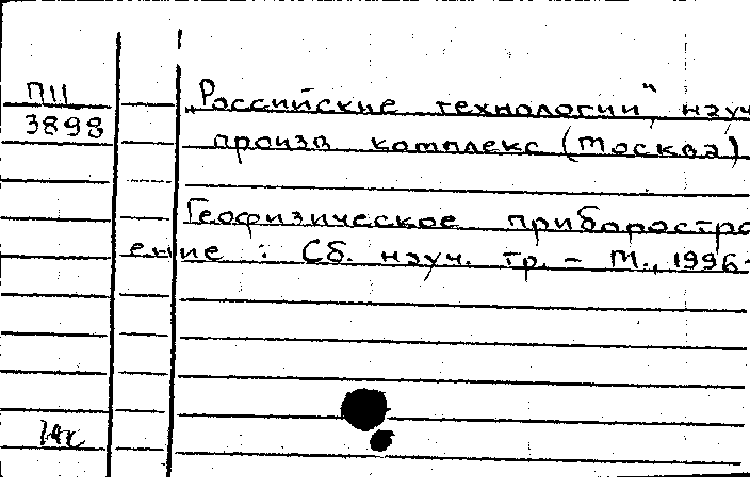 П11
3898
„Российские технологии“, науч
произв комплекс (Москва)
Геофизическое приборостро
ение : Сб. науч. тр. - М., 1996-